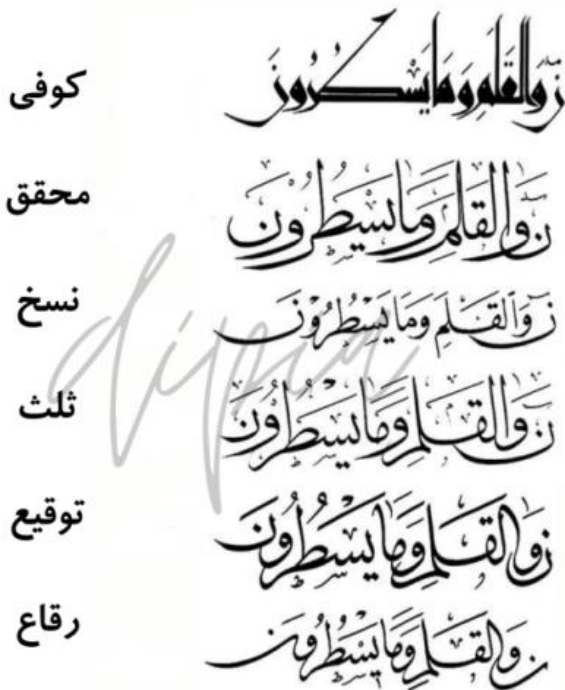 كوفی
ن وَالقَلَمِ وَمَا يَسْطُرُونَ
محقق
نَ وَالقَلَمِ وَمَا يَسْطُرُونَ
نسخ
نَ وَالقَلَمِ وَمَا يَسْطُرُونَ
ثلث
نَ وَالقَلَمِ وَمَا يَسْطُرُونَ
توقیع
نَ وَالقَلَمِ وَمَا يَسْطُرُونَ
رقاع
ن وَالقَلَمِ وَمَا يَسْطُرُونَ
dipia